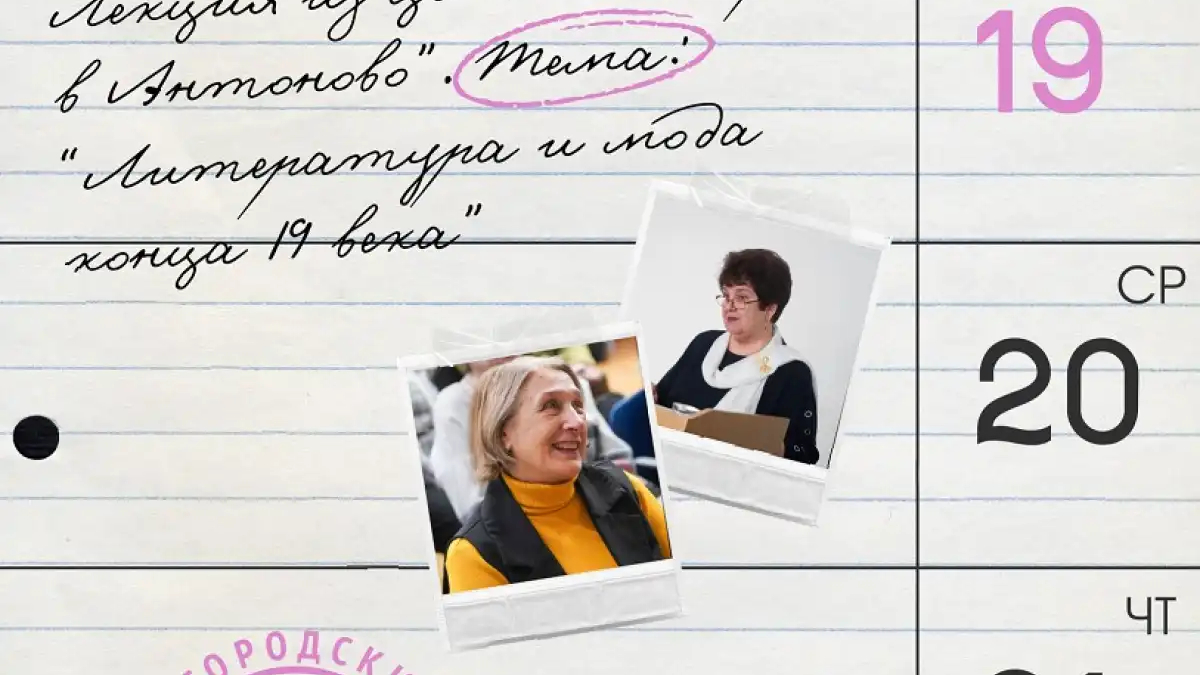 Лекция из
в Антоново". Тема:
"Литература и мода
конца 19 века"
19
СР
20
ЧТ